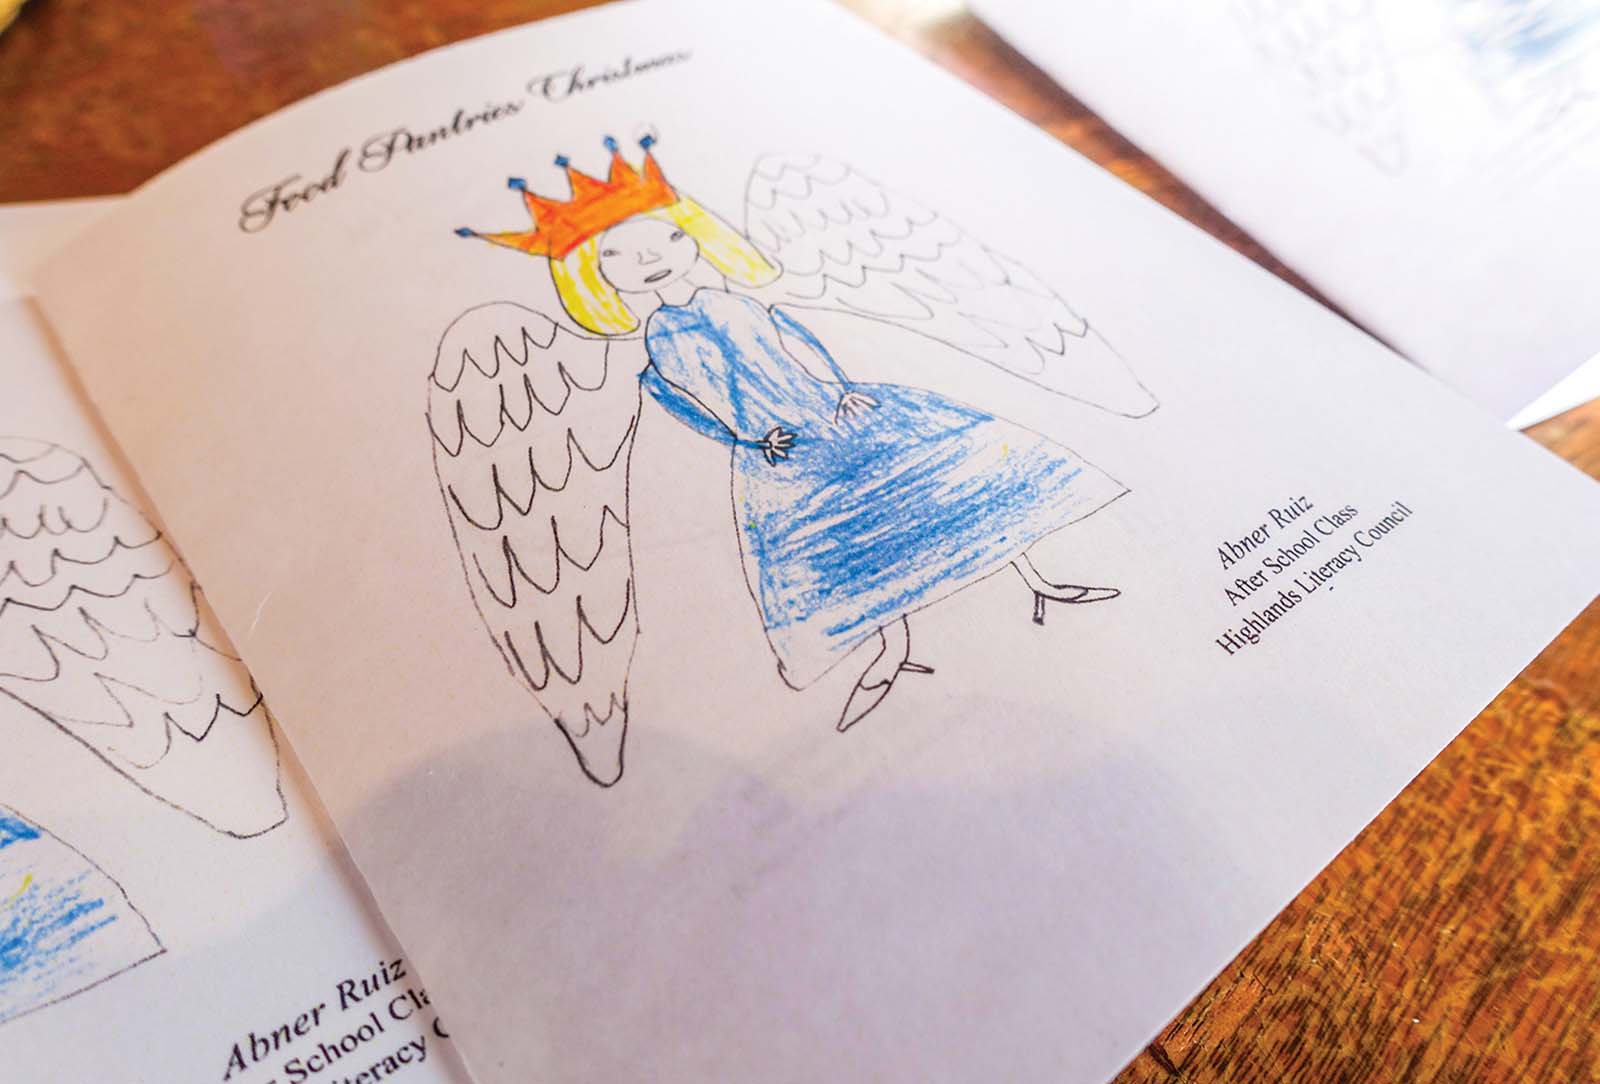 Food Pantries Christmas
Abner Ruiz
After School Class
Highlands Literacy Council
Abner Ruiz
School Cla
teracy C